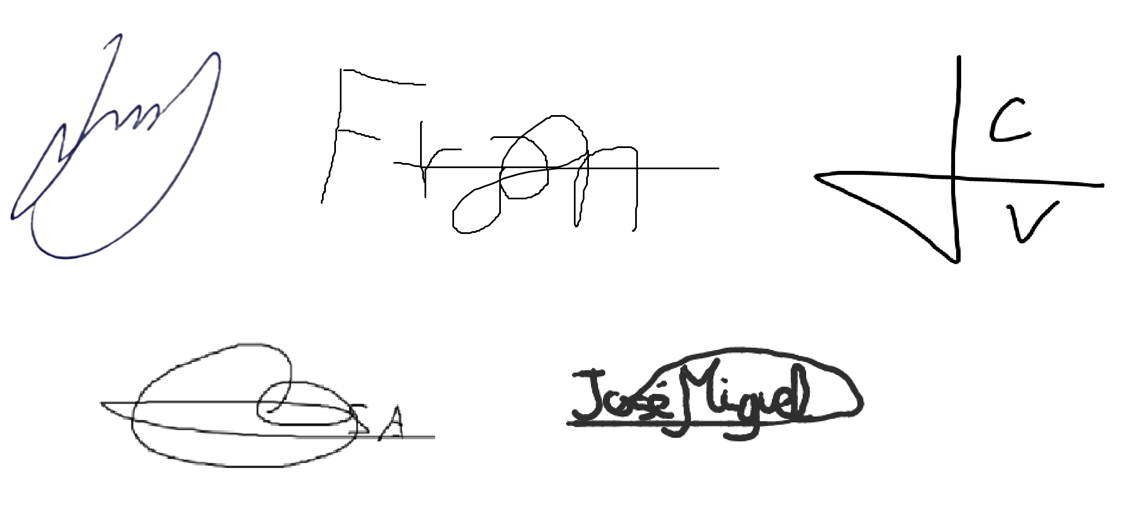 Fran
C
V
SA
José Miguel